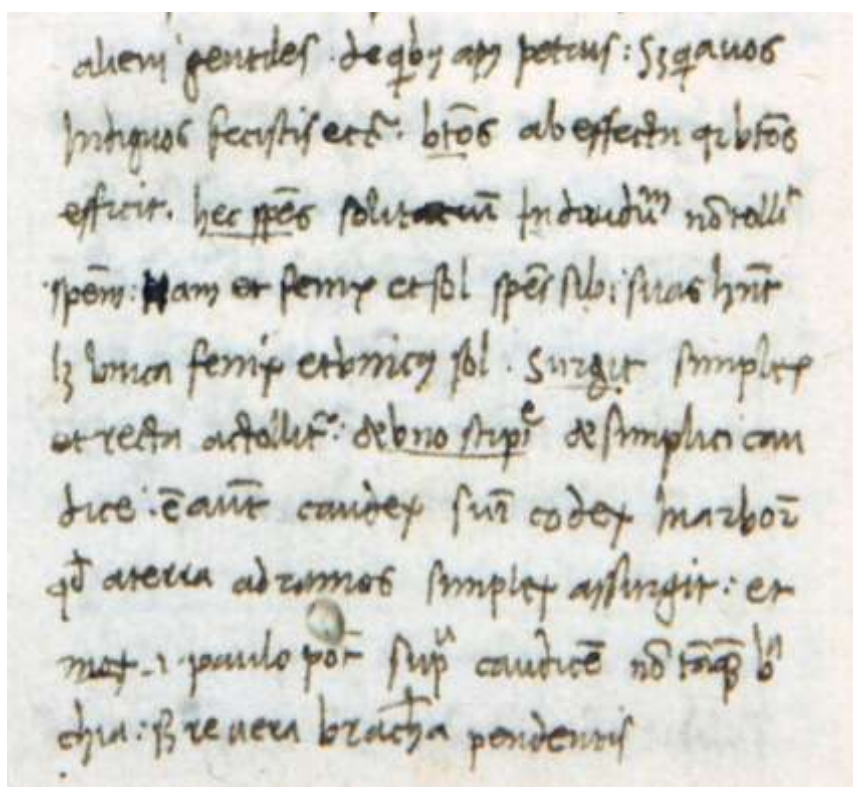 alieni gentiles . de qĭbꝫ apꝰ petrus : Sꝫ q̃ a uos
Indignos fecistis etc̃ . bt̃os ab effectu qꝛ bt̃os
efficit . hec spēs solitariũ In laudũm nō tolli
spēm : Nam et fenix et sol spēs sibi suas hñt
lꝫ vnica fenix et vnicꝰ sol . Surgit simplex
et recta attollit᷑ : de vno stipite de simplici cau
dice : ē aũt caudex siũ codex In arboꝝ
qđ a terra ad ramos simplex assurgit : et
mox .i. paulo post sup̱ caudicē nō tāq̃ bra
chia : sꝫ re uera brachia pendentis